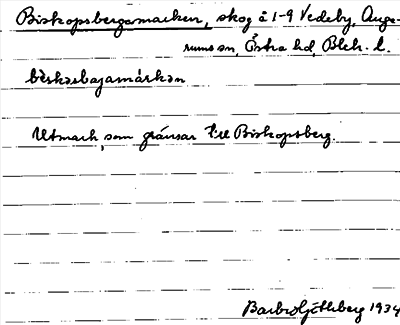 Biskopsbergamarken, skog å 1-9 Vedeby, Auge-
rums sn, Östra hd, Blek. l.
Utmark, som gränsar till Biskopsberg.
Barbro Götlberg 1934